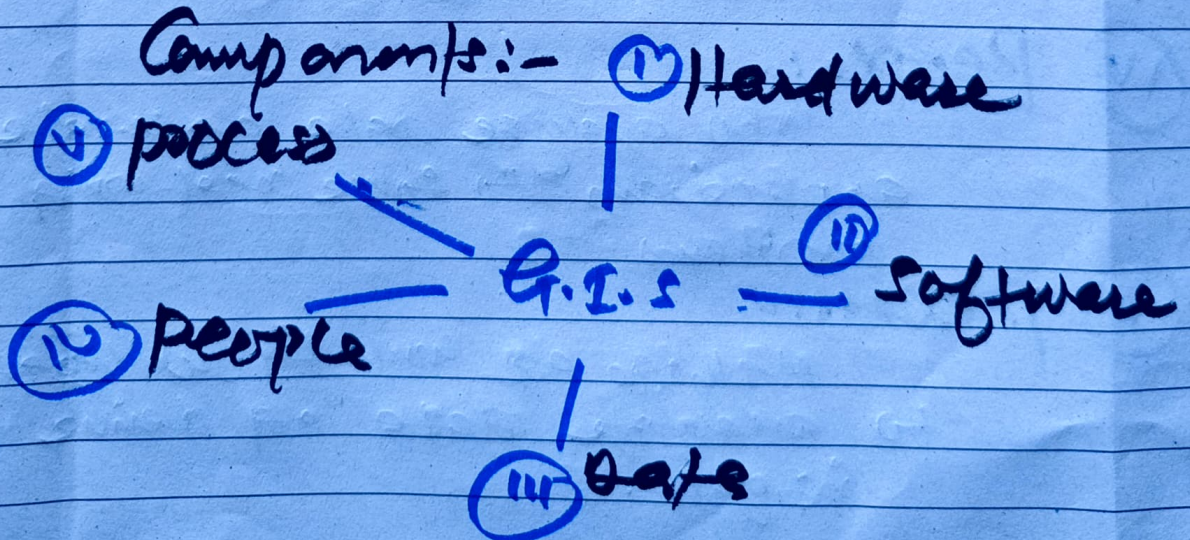 Components:-
(i) Hardware
(v) process
G.I.S
(ii) Software
(iv) People
(iii) Data